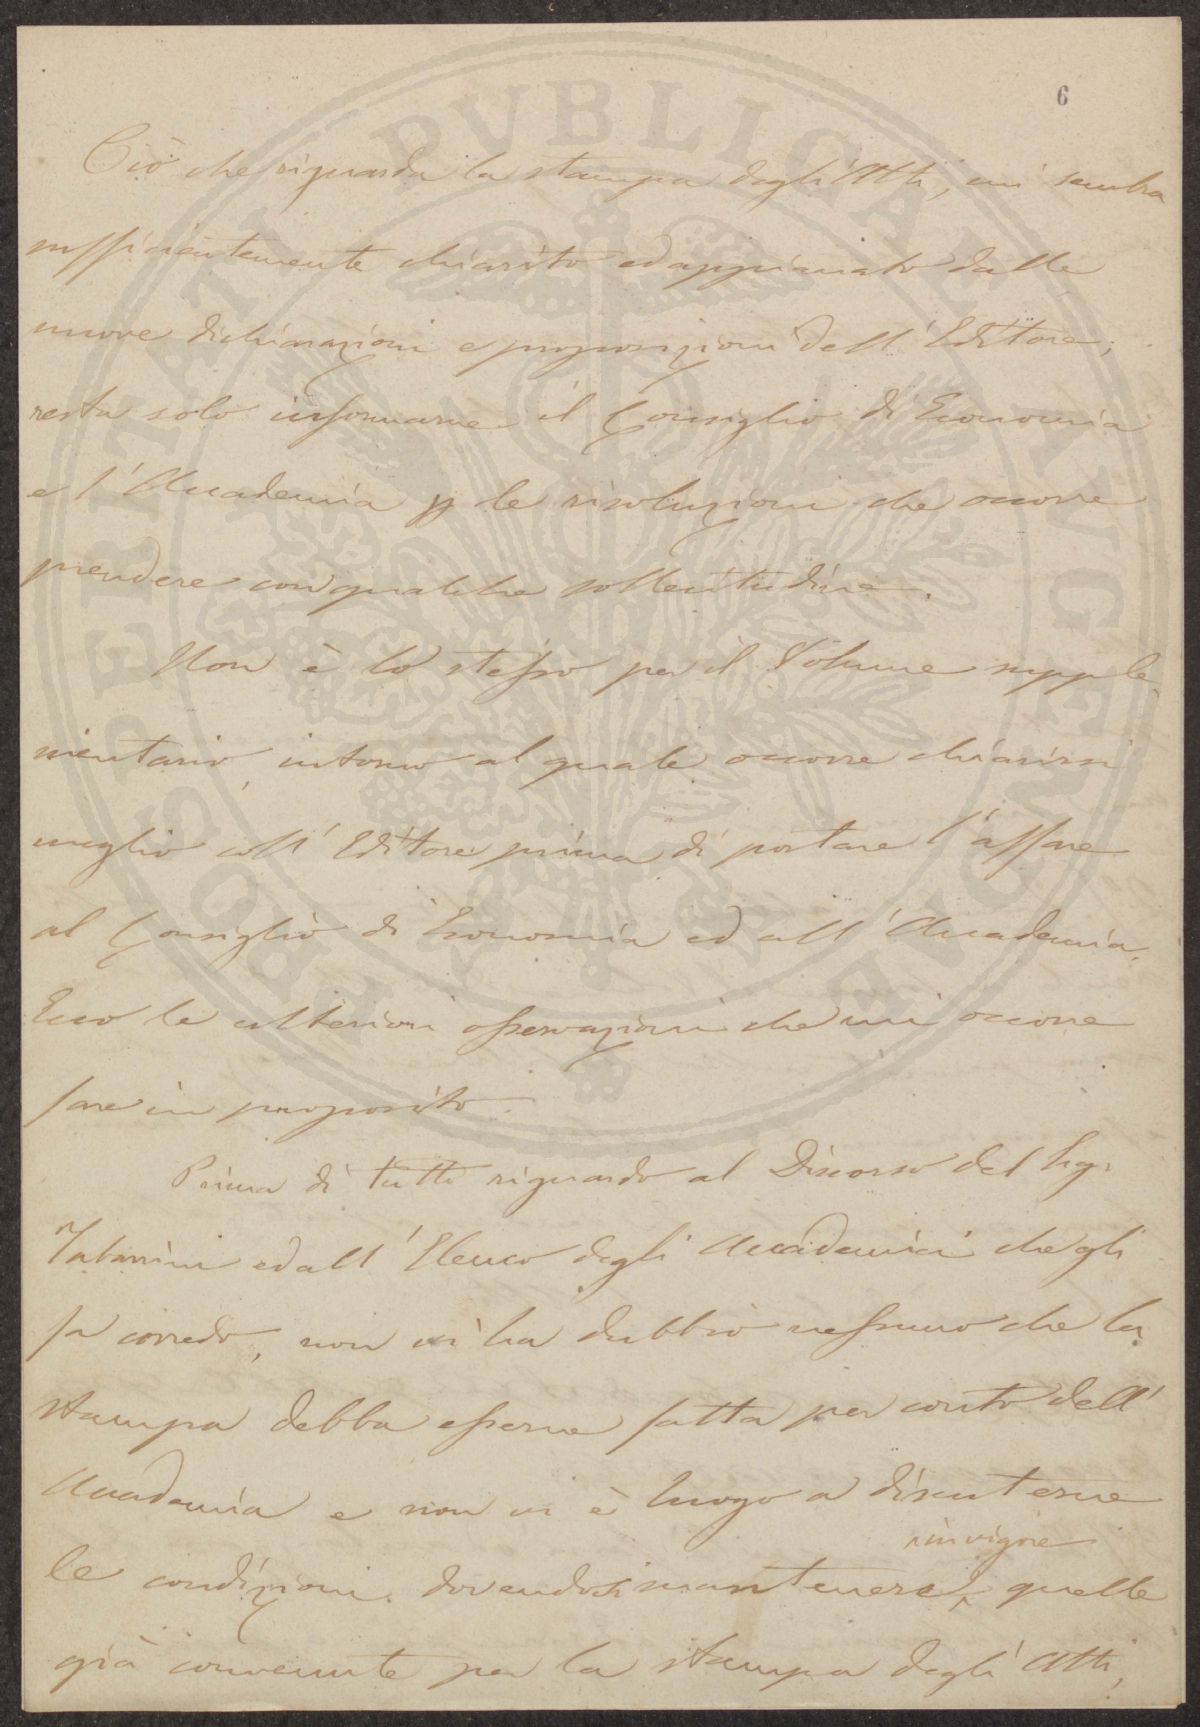 6
Ciò che riguarda la stampa degli Atti, mi sembra
sufficientemente chiarito ed appianato dalle
nuove dichiarazioni e proposizioni dell'Editore,
resta solo informarne il Consiglio di Economia
e l'Accademia p le risoluzioni che occorre
prendere con qualche sollecitudine.
Non è lo stesso per il Volume supple
mentario, intorno al quale occorre chiarirsi
meglio coll'Editore prima di portare l'affare
al Consiglio di Economia ed all'Accademia.
Ecco le ulteriori osservazioni che mi occorre
fare in proposito.
Prima di tutto riguardo al Discorso del Sigr
Tabarrini ed all'Elenco degli Accademici che gli
fa corredo, non vi ha dubbio nessuno che la
stampa debba esserne fatta per conto dell'
Accademia e non vi è luogo a discuterne
in vigore
le condizioni dovendosi mantenere quelle
già convenute per la stampa degli Atti,
PROSPERITATI PVBLICAE AVGENDAE